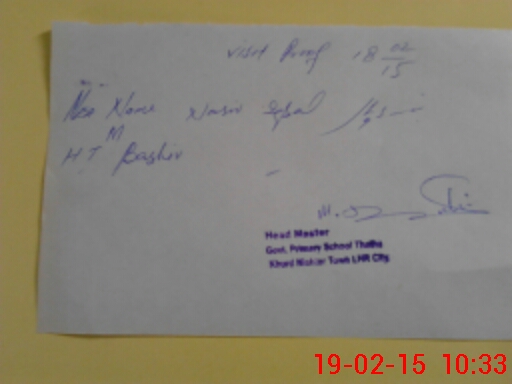 visit Proof 18 02/15
Name Nasir Iqbal
M
HT Bashir
Head Master
Govt. Primary School Thatha
Khurd Nishter Town LHR City.
19-02-15 10:33